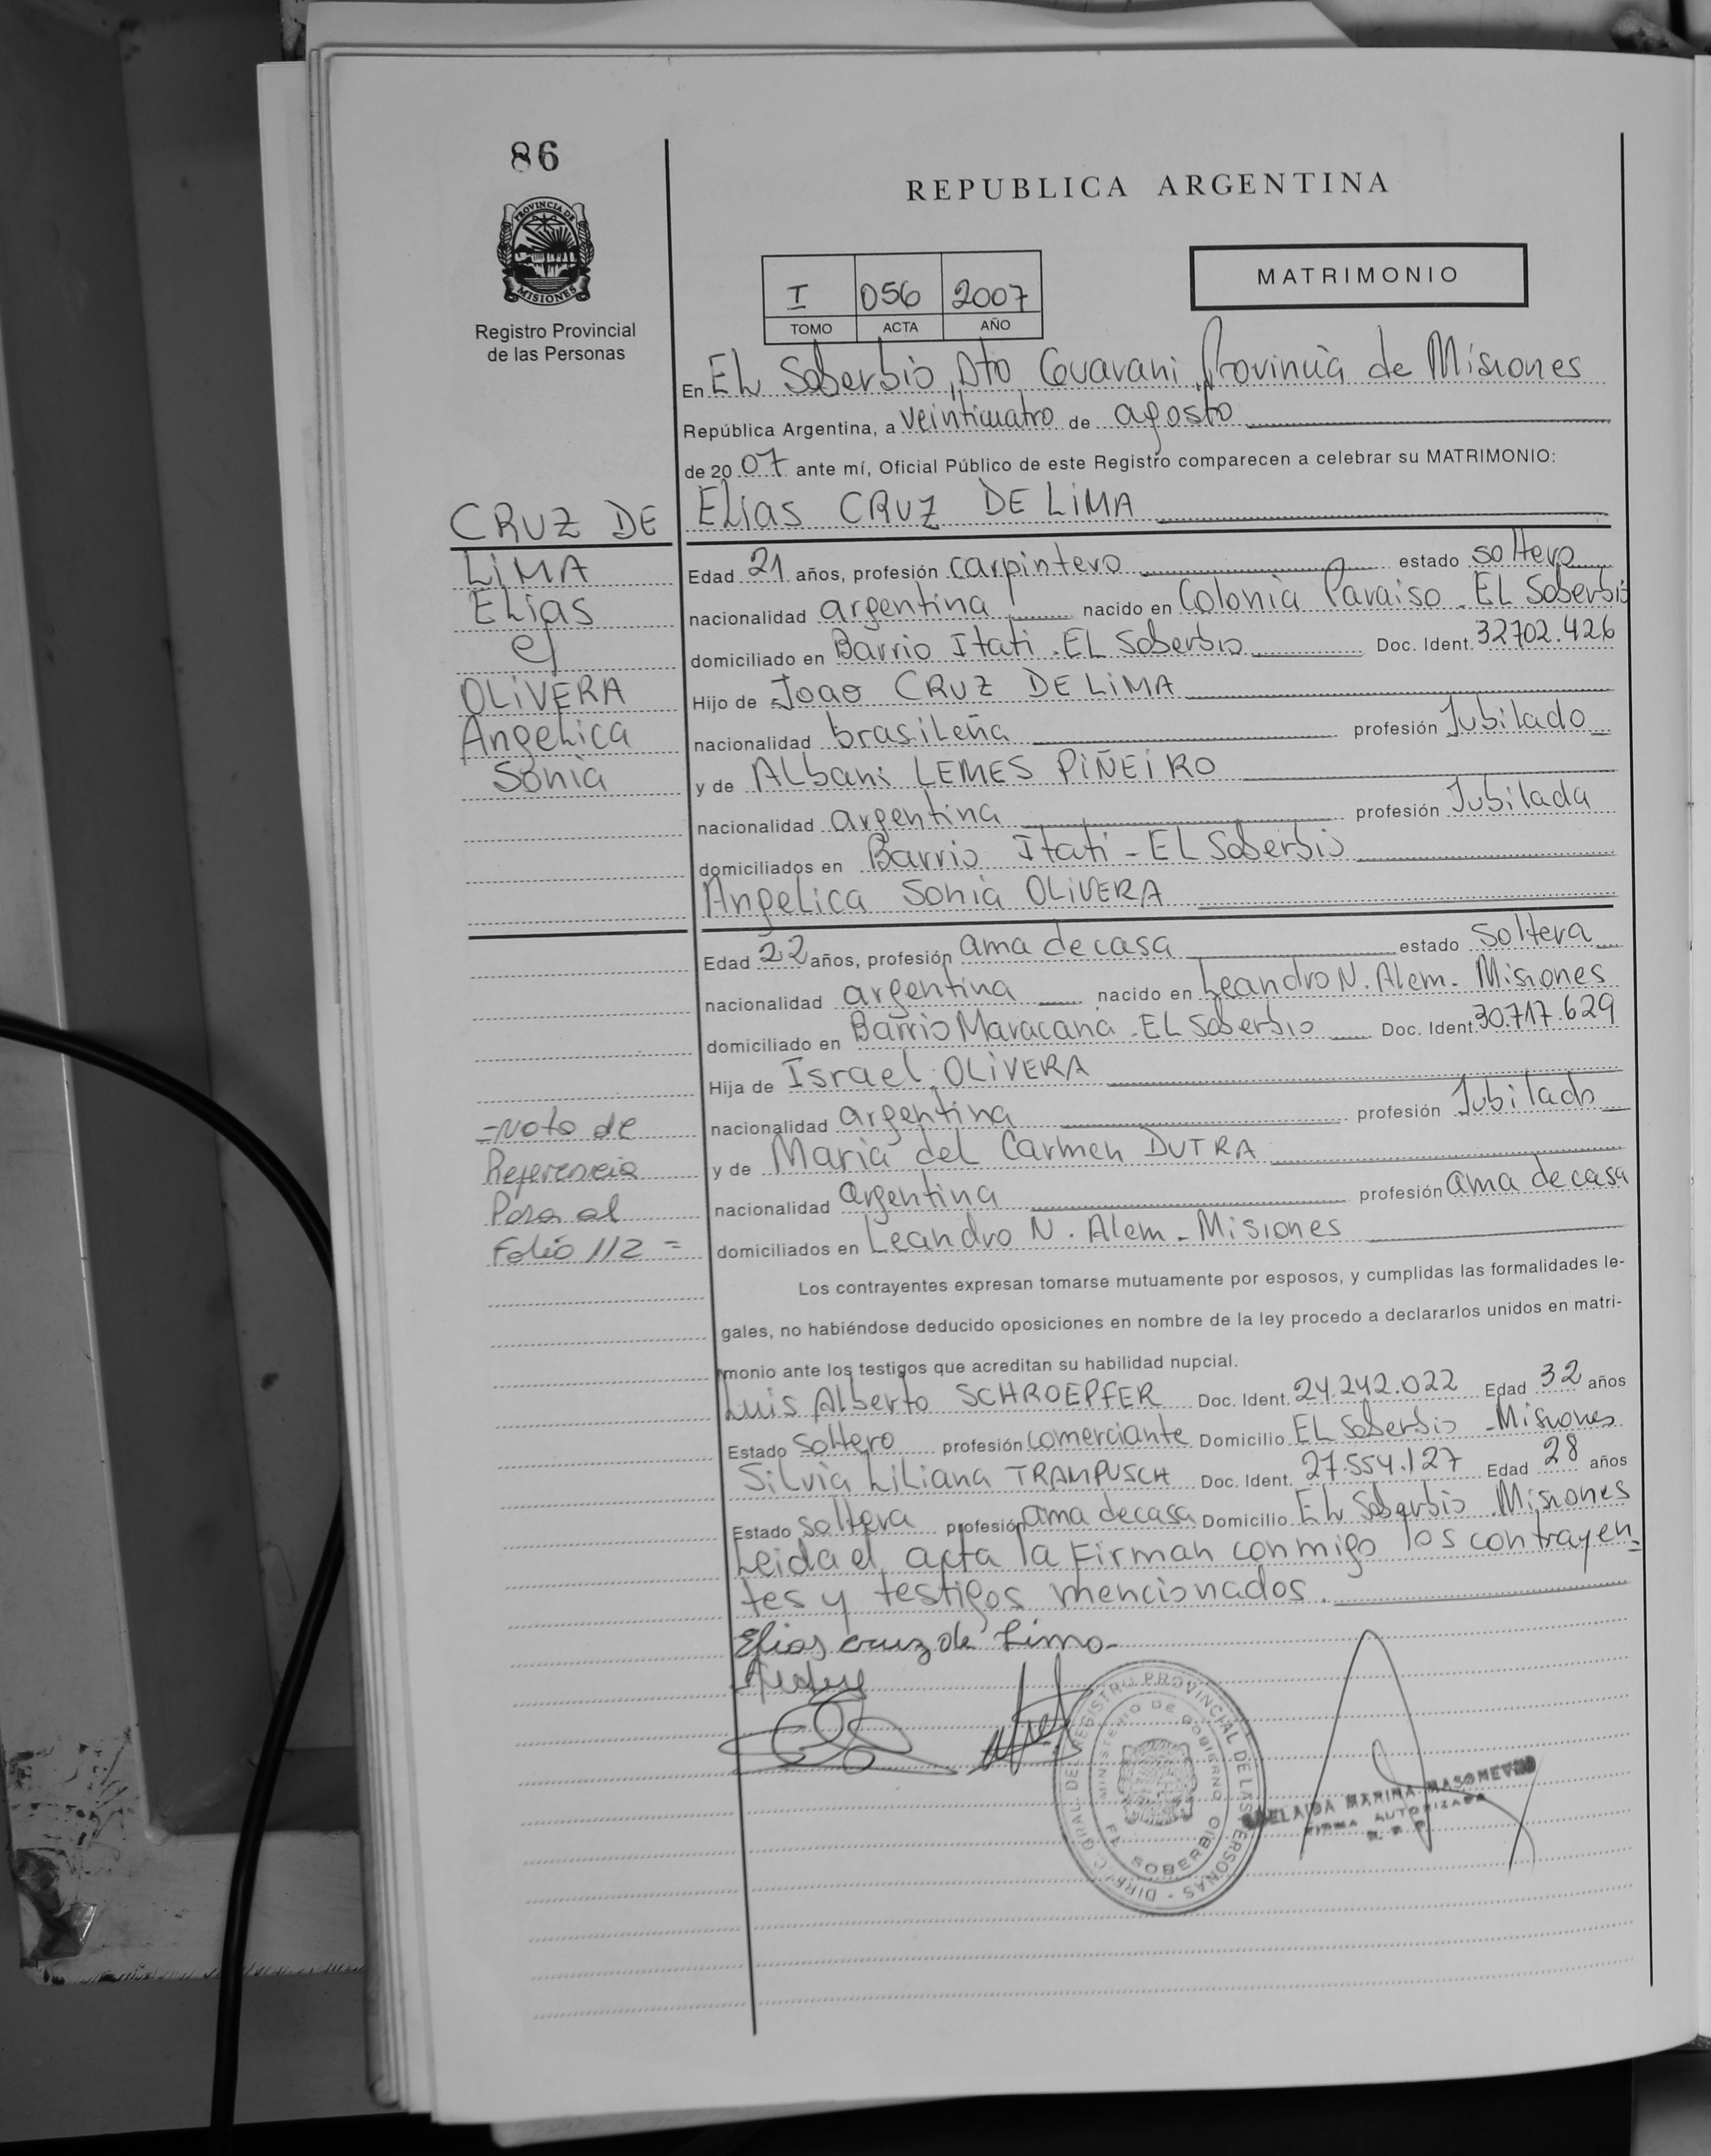 86
REPUBLICA ARGENTINA
PROVINCIA DE
MISIONES
Registro Provincial
de las Personas
I 056 2007
TOMO ACTA AÑO
MATRIMONIO
En EL Soberbio, Dto Guarani, Provincia de Misiones
República Argentina, a veinticuatro de agosto
de 20 07 ante mí, Oficial Público de este Registro comparecen a celebrar su MATRIMONIO:
Elias CRUZ DE LIMA
CRUZ DE
LIMA
ELias
c/
OLIVERA
Angelica
Sonia
Edad 21 años, profesión carpintero estado soltero
nacionalidad argentina nacido en Colonia Paraiso. EL Soberbio
domiciliado en Barrio Itati. EL Soberbio Doc. Ident. 32702.426
Hijo de Joao CRUZ DE LIMA
nacionalidad brasileña profesión Jubilado
y de Albani LEMES PIÑEIRO
nacionalidad argentina profesión Jubilada
domiciliados en Barrio Itati - EL Soberbio
Angelica Sonia OLIVERA
Edad 22 años, profesión ama de casa estado soltera
nacionalidad argentina nacido en Leandro N. Alem. Misiones
domiciliado en Barrio Maracana - EL Soberbio Doc. Ident. 30.717.629
Hija de Israel OLIVERA
nacionalidad argentina profesión Jubilado
y de Maria del Carmen DUTRA
nacionalidad argentina profesión ama de casa
domiciliados en Leandro N. Alem - Misiones
-Nota de
Referencia
Pasa al
Folio 112 =
Los contrayentes expresan tomarse mutuamente por esposos, y cumplidas las formalidades le-
gales, no habiéndose deducido oposiciones en nombre de la ley procedo a declararlos unidos en matri-
monio ante los testigos que acreditan su habilidad nupcial.
Luis Alberto SCHROEPFER Doc. Ident. 24.242.022 Edad 32 años
Estado soltero profesión comerciante Domicilio EL Soberbio - Misiones
Silvia Liliana TRAMPUSCH Doc. Ident. 27.554.127 Edad 28 años
Estado soltera profesión ama de casa Domicilio EL Soberbio. Misiones
Leida el acta la Firman conmigo los contrayen-
tes y testigos mencionados.
Elias cruz de Lima
DIREC. GRAL. DEL REGISTRO PROVINCIAL DE LAS PERSONAS
MINISTERIO DE GOBIERNO
EL SOBERBIO
MARINA
FIRMA AUTORIZADA